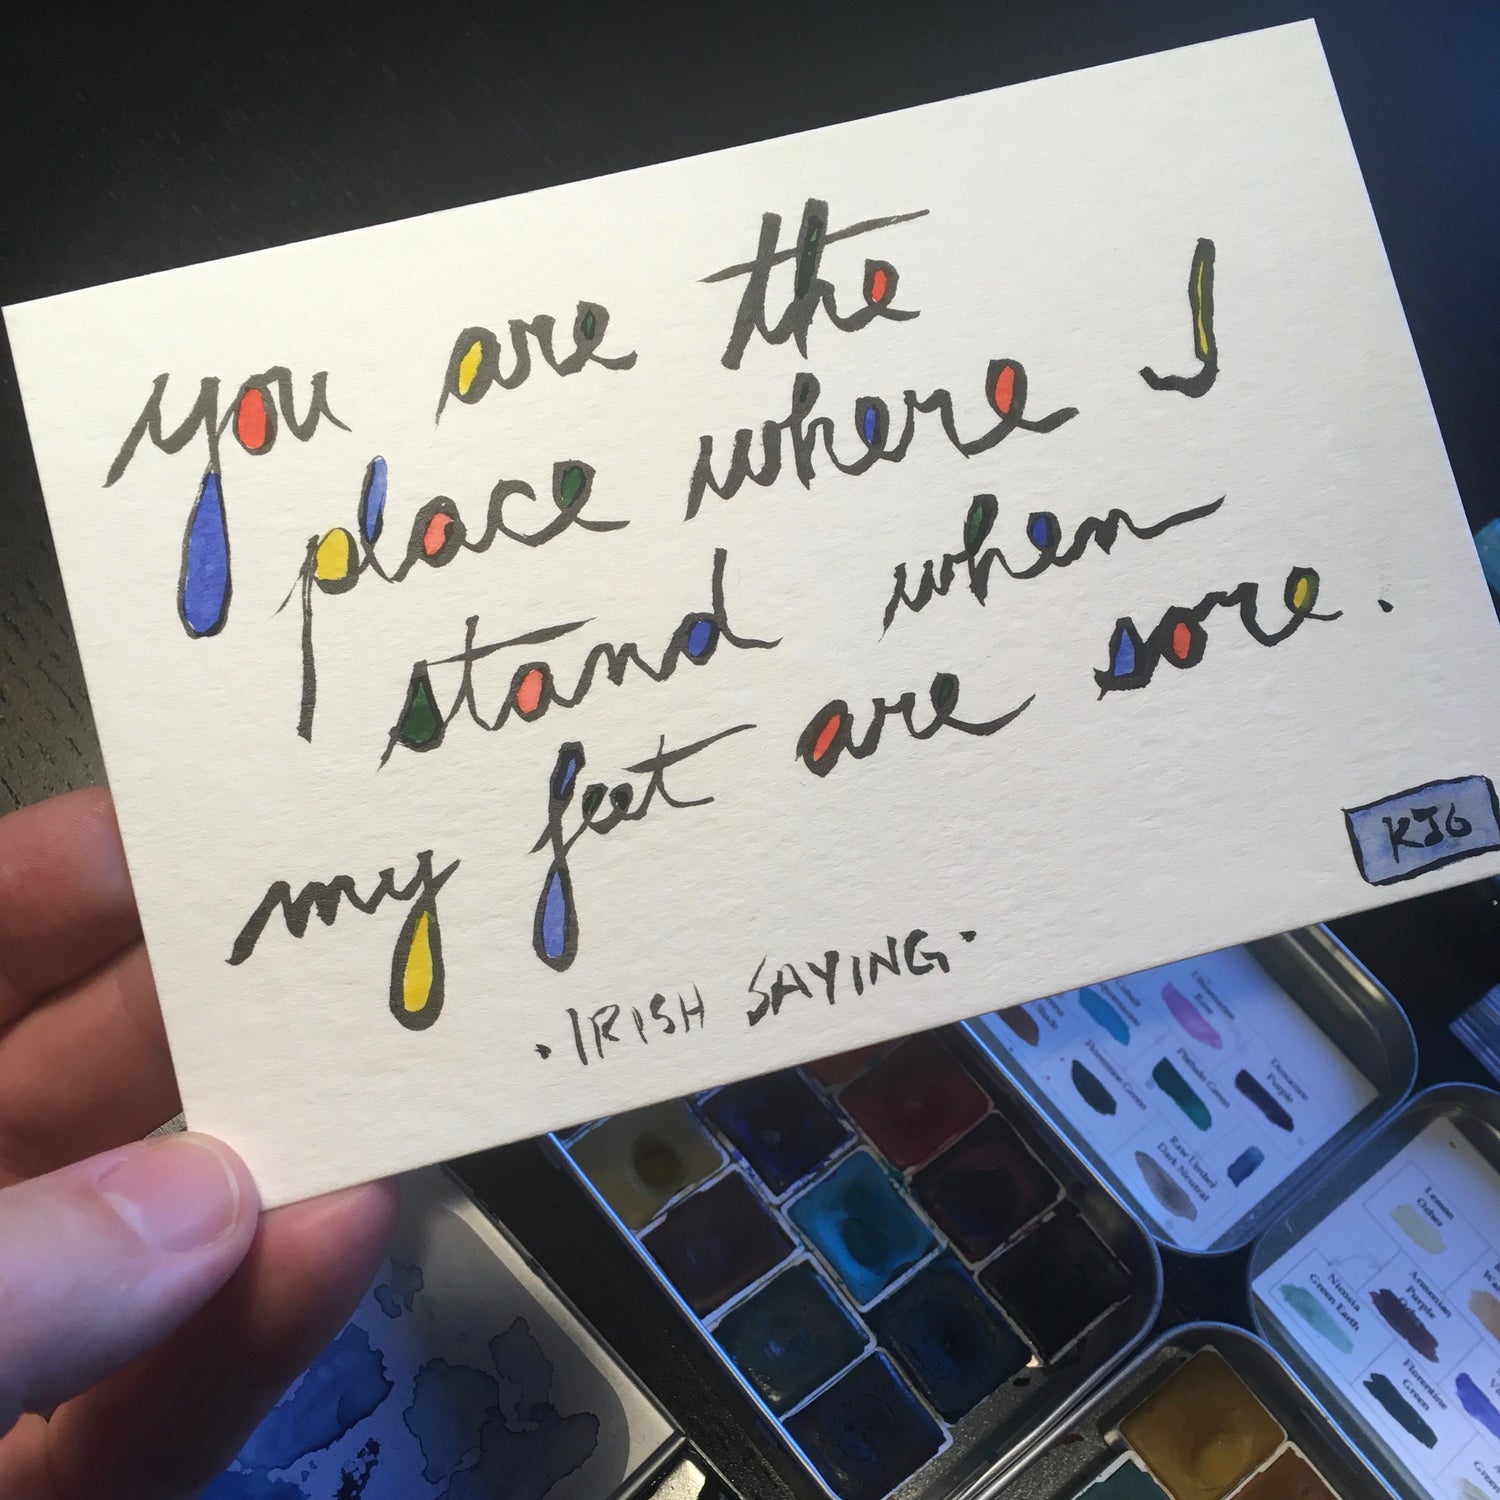 you are the
place where I
stand when
my feet are sore.
·IRISH SAYING·
KJG
Cobalt
Rose
Florentine Green
Phthalo Green
Purple
Raw Umber
Dark Neutral
Lemon
Ocher
Nicosia
Green Earth
Armenian
Purple
Florentine
Green